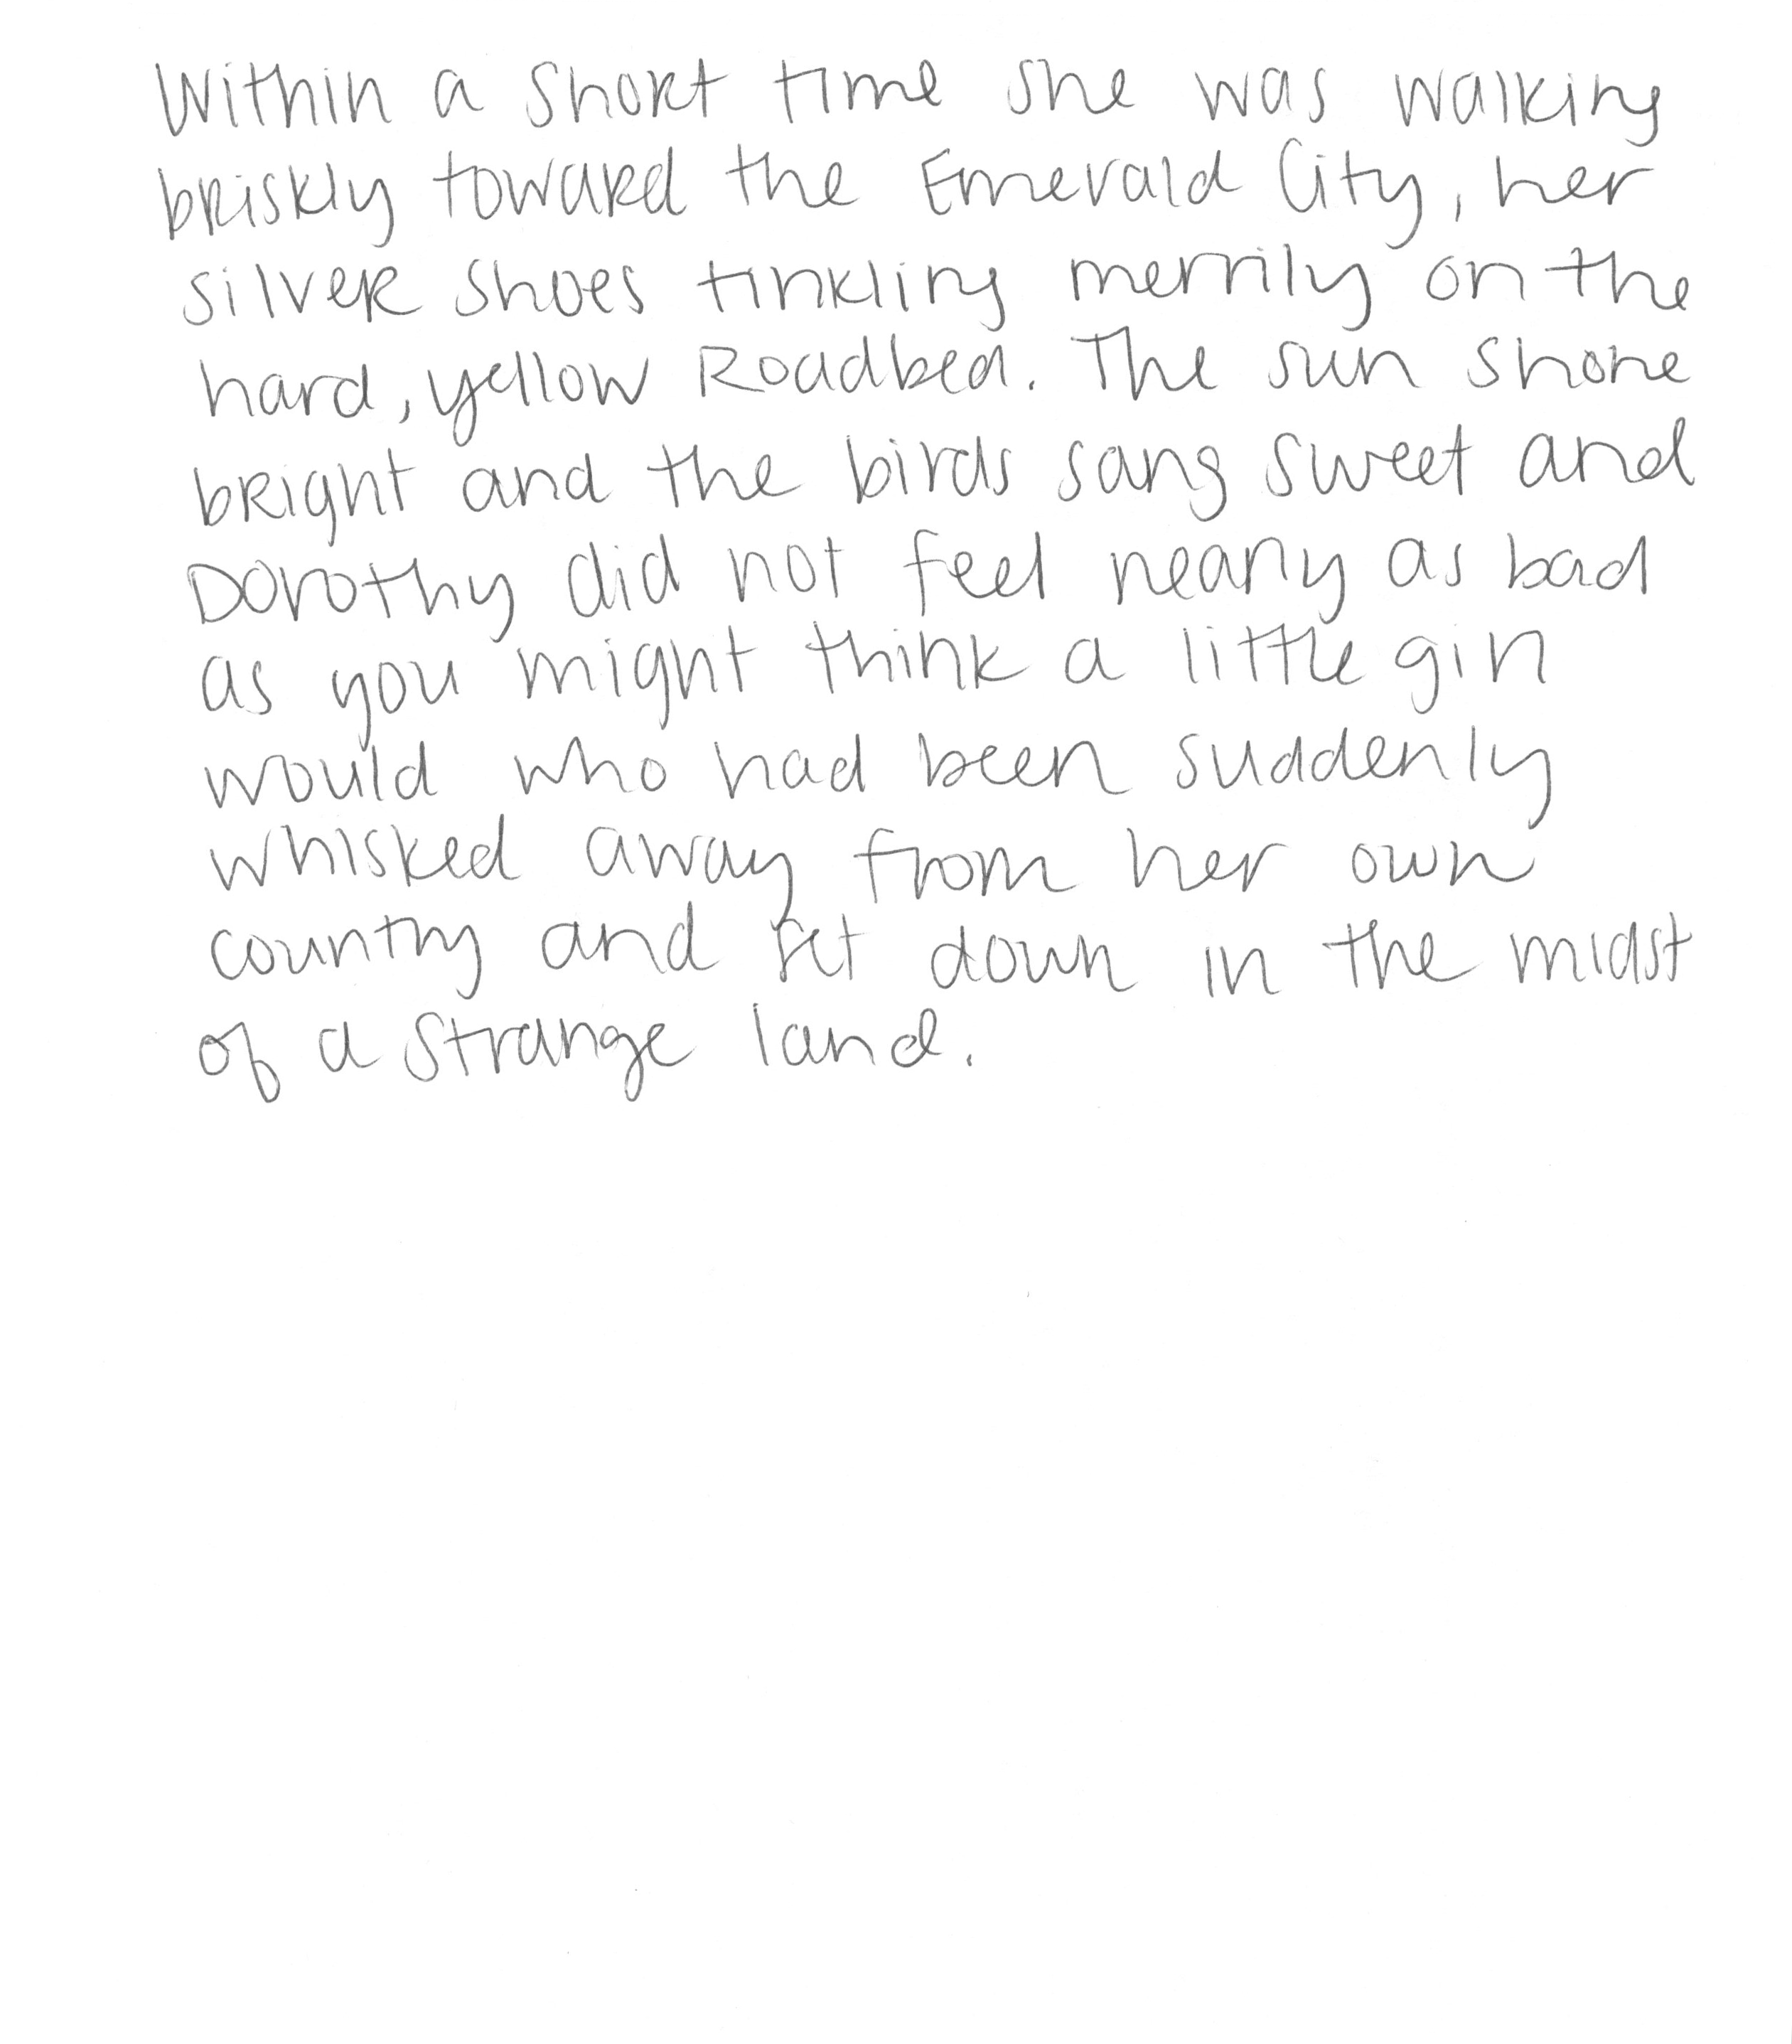 Within a short time she was walking
briskly toward the Emerald City, her
silver shoes tinkling merrily on the
hard, yellow Roadbed. The sun shone
bright and the birds sang sweet and
Dorothy did not feel nearly as bad
as you might think a little girl
would who had been suddenly
whisked away from her own
country and set down in the midst
of a strange land.